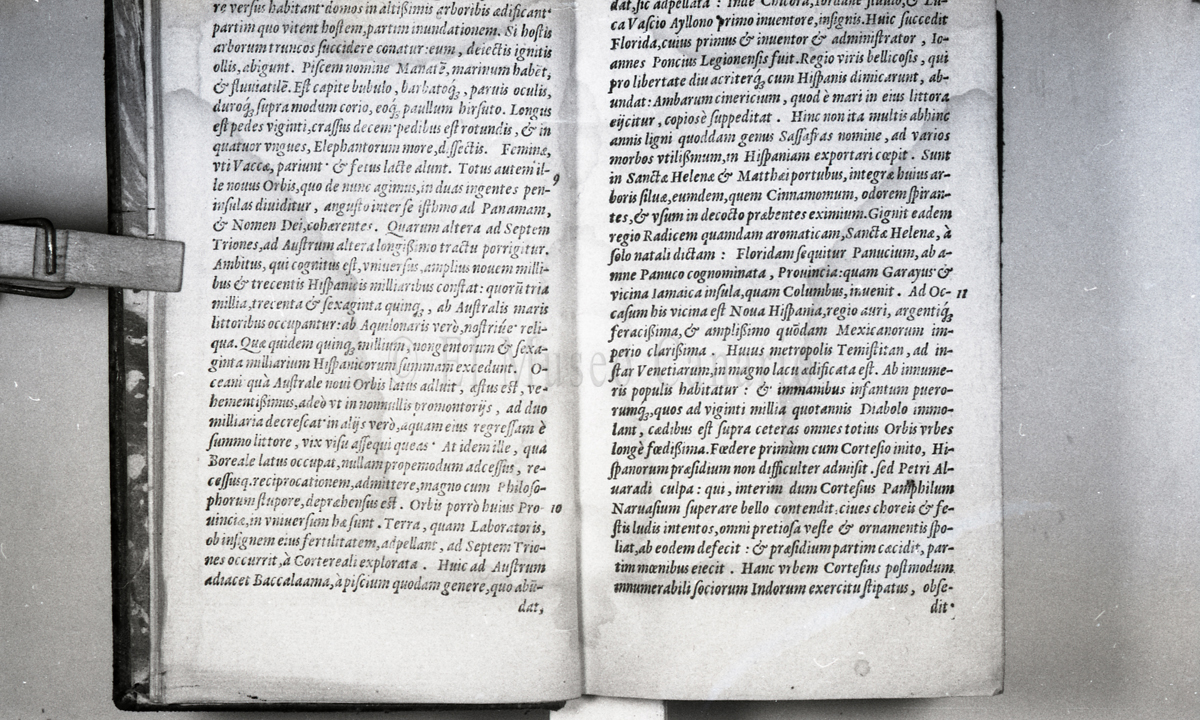 re versus habitant domos in altißimis arboribus ædificant
partim quo vitent hostem, partim inundationem. Si hostis
arborum truncos succidere conatur: eum, deiectis ignitis
ollis, abigunt. Piscem nomine Manatē, marinum habēt,
& fluuiatilē. Est capite bubulo, barbatoq́;, paruis oculis,
duroq́; supra modum corio, eoq́; paullum hirsuto. Longus
est pedes viginti, crassus decem pedibus est rotundis, & in
quatuor vngues, Elephantorum more, dissectis. Feminæ,
vti Vaccæ, pariunt & fetus lacte alunt. Totus autem il-
le nouus Orbis, quo de nunc agimus, in duas ingentes pen- 9
insulas diuiditur, angusto inter se isthmo ad Panamam,
& Nomen Dei, cohærentes. Quarum altera ad Septem
Triones, ad Austrum altera longißimo tractu porrigitur.
Ambitus, qui cognitus est, vniuersus, amplius nouem milli-
bus & trecentis Hispanicis milliaribus constat: quorū tria
millia, trecenta & sexaginta quinq;, ab Australis maris
littoribus occupantur: ab Aquilonaris verò, nostriúe reli-
qua. Quæ quidem quinq; millium, nongentorum & sexa-
ginta milliarium Hispanicorum summam excedunt. O-
ceani quà Australe noui Orbis latus adluit, æstus est, ve-
hementißimus, adeò vt in nonnullis promontorijs, ad duo
milliaria decrescat in alijs verò, aquam eius regressam è
summo littore, vix visu assequi queas. At idem ille, qua
Boreale latus occupat, nullam propemodum adcessus, re-
cessusq. reciprocationem, admittere, magno cum Philoso-
phorum stupore, depræhensus est. Orbis porrò huius Pro- 10
uinciæ, in vniuersum hæ sunt. Terra, quam Laboratoris,
ob insignem eius fertilitatem, adpellant, ad Septem Trio-
nes occurrit, à Cortereali explorata. Huic ad Austrum
adiacet Baccalaama, à piscium quodam genere, quo abū-
dat,
dat, sic adpellata: Inde Chicora, Iordane fluuio, &
ca Vascio Ayllono primo inuentore, insignis. Huic succedit
Florida, cuius primus & inuentor & administrator, Io-
annes Poncius Legionensis fuit. Regio viris bellicosis, qui
pro libertate diu acriterq́; cum Hispanis dimicarunt, ab-
undat: Ambarum cinericium, quod è mari in eius littora
eijcitur, copiosè suppeditat. Hinc non ita multis abhinc
annis ligni quoddam genus Sassafras nomine, ad varios
morbos vtilißimum, in Hispaniam exportari cœpit. Sunt
in Sanctæ Helenæ & Matthæi portubus, integræ huius ar-
boris siluæ, eumdem, quem Cinnamomum, odorem spiran-
tes, & vsum in decocto præbentes eximium. Gignit eadem
regio Radicem quamdam aromaticam, Sanctæ Helenæ, à
solo natali dictam: Floridam sequitur Panucium, ab a-
mne Panuco cognominata, Prouincia: quam Garayus &
vicina Iamaica insula, quam Columbus, inuenit. Ad Oc- 11
casum his vicina est Noua Hispania, regio auri, argentiq́;
feracißima, & amplißimo quōdam Mexicanorum im-
perio clarißima. Huius metropolis Temistitan, ad in-
star Venetiarum, in magno lacu ædificata est. Ab innume-
ris populis habitatur: & immanibus infantum puero-
rumq́;, quos ad viginti millia quotannis Diabolo immo-
lant, cædibus est supra ceteras omnes totius Orbis vrbes
longè fœdißima. Fœdere primum cum Cortesio inito, Hi-
spanorum præsidium non difficulter admisit. sed Petri Al-
uaradi culpa: qui, interim dum Cortesius Pamphilum
Naruasium superare bello contendit, ciues choreis & fe-
stis ludis intentos, omni pretiosa veste & ornamentis spo-
liat, ab eodem defecit: & præsidium partim cæcidit, par-
tim mœnibus eiecit. Hanc vrbem Cortesius postmodum
innumerabili sociorum Indorum exercitu stipatus, obse-
dit